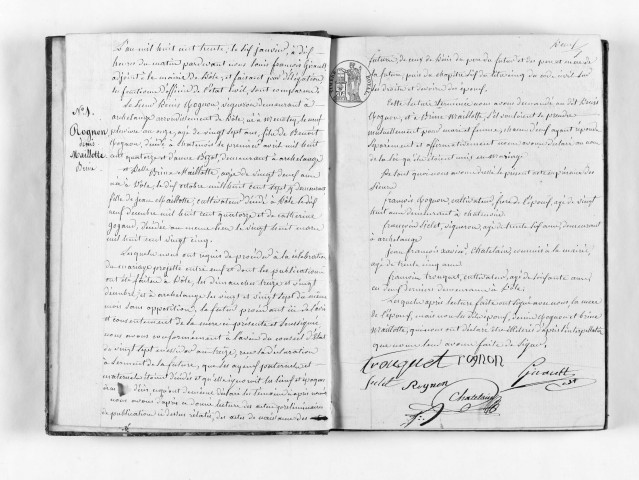 L'an mil huit cent trente, le dix janvier, à dix
heures du matin pardevant nous Louis François Girault
adjoint à la mairie de Dôle, et faisant par délégation
les fonctions d'officier de l'état civil, sont comparus
le sieur Denis Rognon, vigneron demeurant à
archelange arrondissement de Dôle, né à menotey, le neuf
pluviose an onze, agé de vingt sept ans, fils de Benoit
Rognon, décédé à Chatenois le premier avril mil huit
cent quatorze et d'anne demeurant à archelange
N° 1.
Rognon
denis
Maillotte
Brine
et Delle Brine Maillotte, agée de vingt neuf ans
née à Dôle, le dix octobre mil huit cent demeurant
fille de Jean Maillotte, cultivateur décédé à Dôle le dix
neuf décembre mil huit cent quatorze et de catherine
décédée au même lieu le vingt huit mars
mil huit cent vingt cinq.
Lesquels nous ont requis de procéder à la célébration
du mariage projetté entre eux et dont les publications
ont été faites à Dôle, les dimanches treize et vingt
décembre, et à archelange les vingt et vingt sept du même
mois sans opposition, la future produisant
et consentement de la mère ci présente et soussignée
nous avons conformément à l'avis du conseil d'Etat
de vingt sept messidor an treize, reçu la déclaration
à serment de la future, que les ayeux paternels et
maternels étaient décédés et qu'elle ignorait le lieu et l'époque
nous avons d'après ce donné lecture des actes préliminaires
de publication ci dessus relatés, des actes de naissance des
future, de ceux de décès du père du futur et des père et mère de
la future, puis du chapitre six du titre cinq du code civil sur
les droits et devoirs des époux.
Cette lecture terminée nous avons demandé au dit Denis
Rognon, et à Brine Maillotte, s'ils veulent se prendre
mutuellement pour mari et femme, chacun d'eux ayant répondu
séparément et affirmativement nous avons déclaré au nom
de la loi qu'ils étaient unis en mariage
De tout quoi nous avons dressé le présent acte en présence des
sieurs
françois Rognon, cultivateur, frère de l'époux, agé de vingt
huit ans demeurant à chatenois
françois vigneron, agé de trente six ans, demeurant
à archelange
jean françois xavier Chatelain, commis à la mairie,
agé de trente cinq ans
françois trouget, cultivateur, agé de soixante ans,
ces deux derniers demeurant à Dôle.
Lesquels après lecture faite ont signé avec nous la mère
de l'époux, mais non les dits époux, denis Rognon et Brine
Maillotte, qui nous ont déclaré être illettrés d'après l'interpellation
que nous leur avons faite de signer.
trouget rognon
Rognon Girault
Chatelain adjt